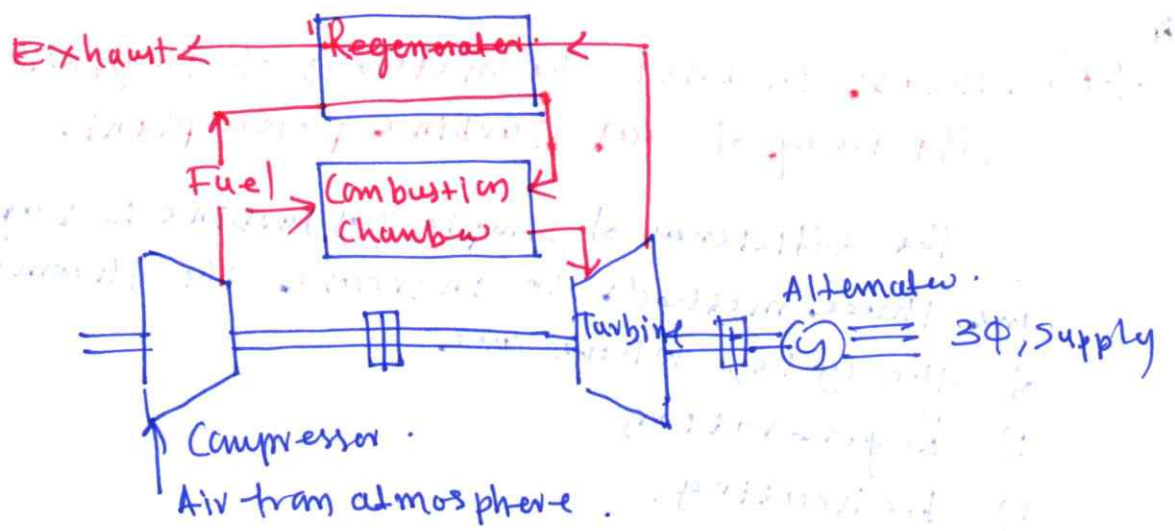 Exhaust
Regenerator
Fuel
Combustion
Chamber
Turbine
Alternator.
3Φ, Supply
Compressor.
Air from atmosphere.